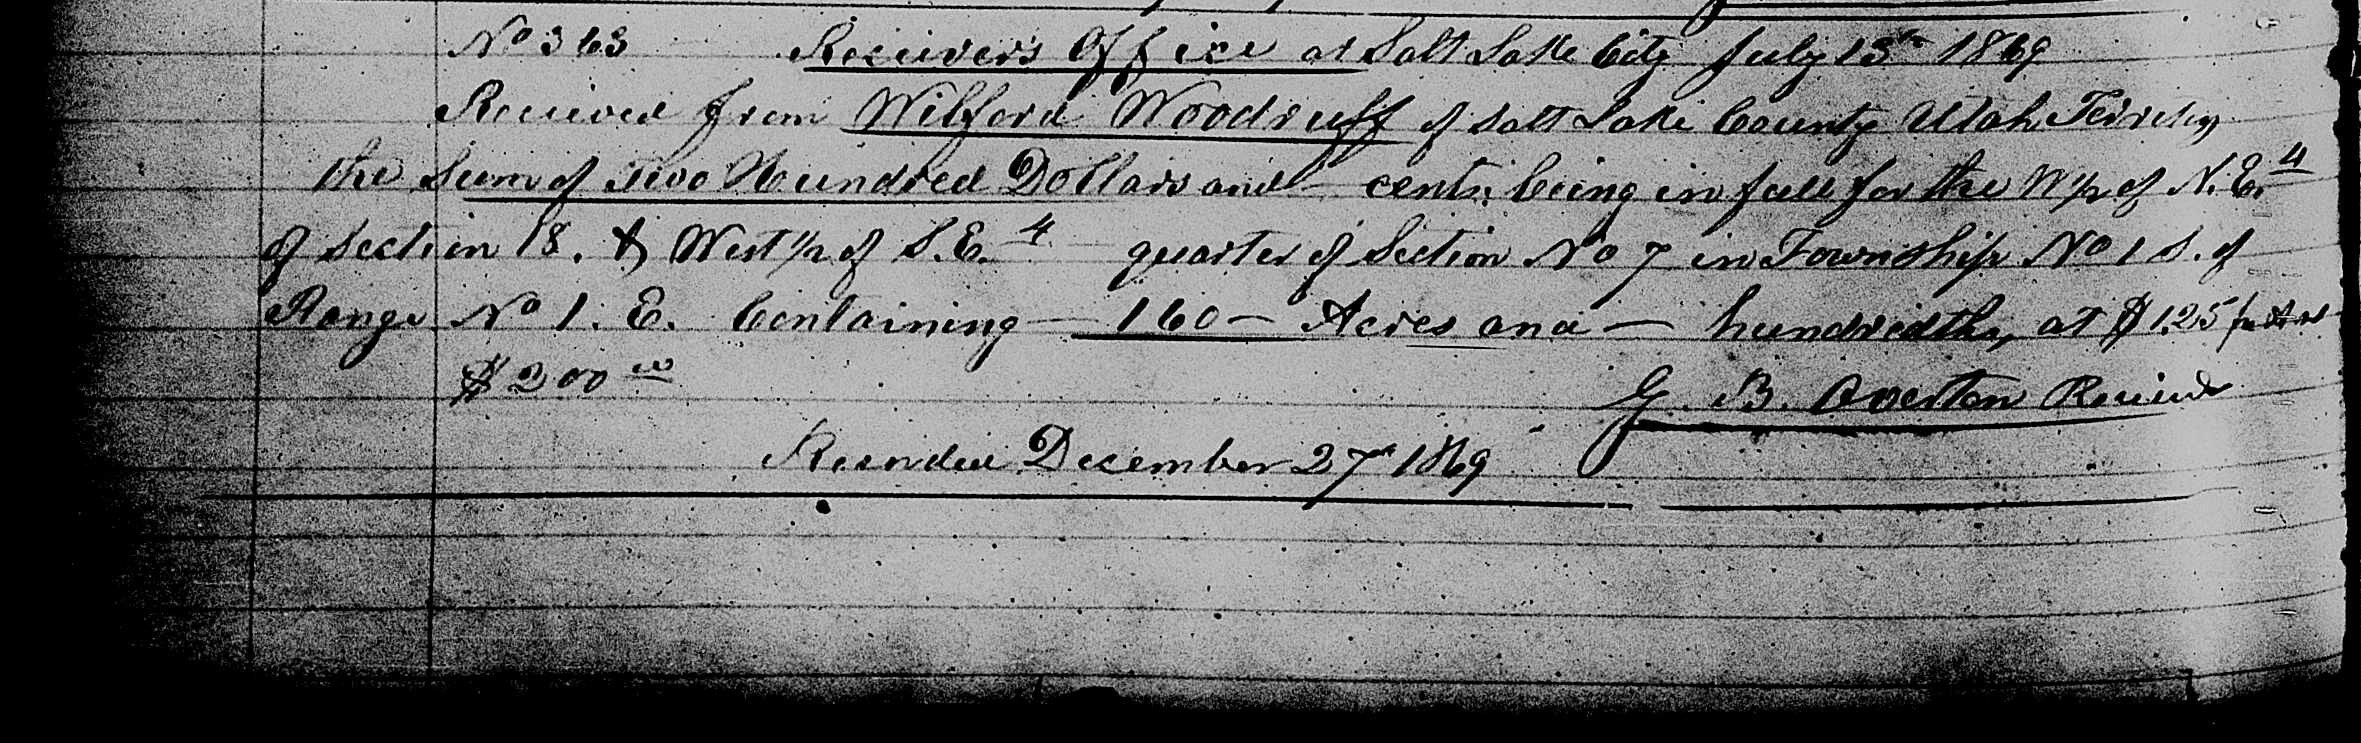 No 363 Receiver's Office at Salt Lake City July 13th 1869
Received from Wilford Woodruff of Salt Lake County Utah Territory
the Sum of Two Hundred Dollars and — cents; being in full for the W ½ of N.E. 4
of Section 18. & West ½ of S.E. 4 quarter of Section No 7 in Township No 1 S. of
Range No 1. E. Containing — 160 — Acres and — hundredths, at $1.25 per Acre
$200 00
G. B. Overton Receiver
Recorded December 27th 1869